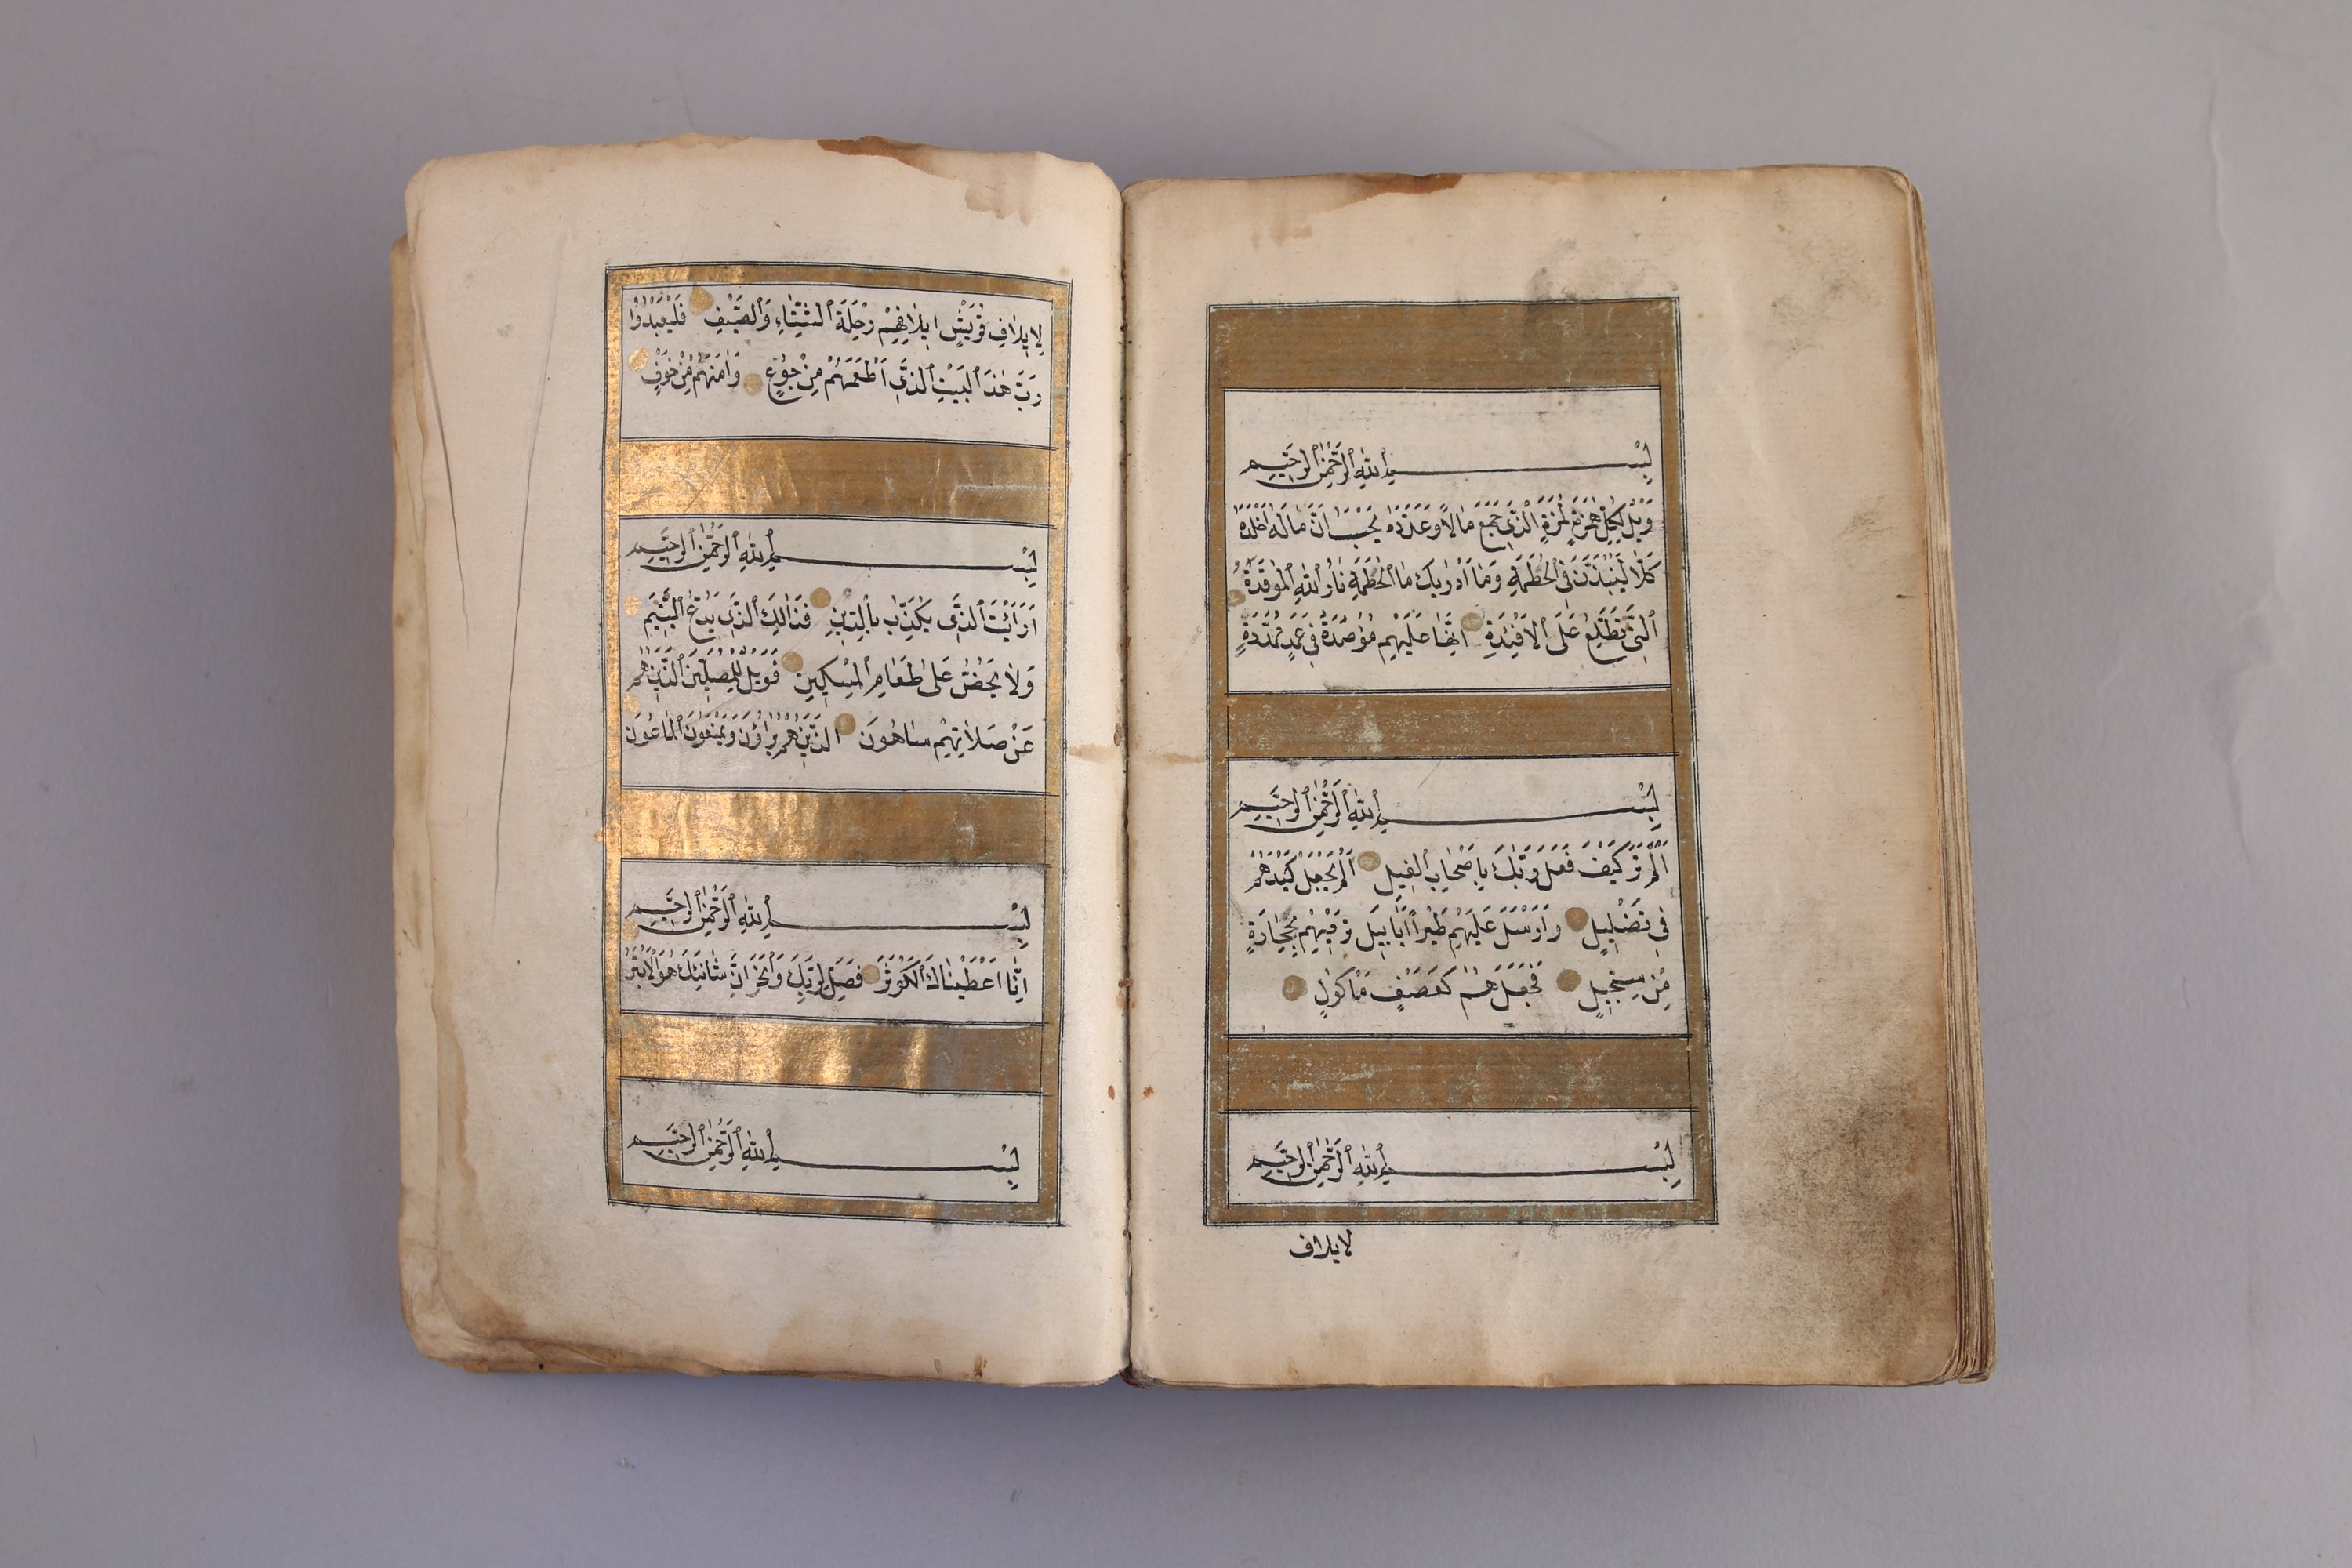 بِسْمِ اللهِ الرَّحْمٰنِ الرَّحِيمِ
وَيْلٌ لِكُلِّ هُمَزَةٍ لُمَزَةٍ الَّذِى جَمَعَ مَالًا وَعَدَّدَهُ يَحْسَبُ اَنَّ مَالَهُ اَخْلَدَهُ
كَلَّا لَيُنْبَذَنَّ فِى الْحُطَمَةِ وَمَا اَدْرٰيكَ مَا الْحُطَمَةِ نَارُ اللهِ الْمُوقَدَةُ
اَلَّتِى تَطَّلِعُ عَلَى الْاَفْئِدَةِ اِنَّهَا عَلَيْهِمْ مُؤْصَدَةٌ فِى عَمَدٍ مُمَدَّدَةٍ
بِسْمِ اللهِ الرَّحْمٰنِ الرَّحِيمِ
اَلَمْ تَرَ كَيْفَ فَعَلَ رَبُّكَ بِاَصْحَابِ الْفِيلِ اَلَمْ يَجْعَلْ كَيْدَهُمْ
فِى تَضْلِيلٍ وَاَرْسَلَ عَلَيْهِمْ طَيْرًا اَبَابِيلَ تَرْمِيهِمْ بِحِجَارَةٍ
مِنْ سِجِّيلٍ فَجَعَلَهُمْ كَعَصْفٍ مَاْكُولٍ
بِسْمِ اللهِ الرَّحْمٰنِ الرَّحِيمِ
لايلاف
لِاِيلَافِ قُرَيْشٍ اِيلَافِهِمْ رِحْلَةَ الشِّتَاءِ وَالصَّيْفِ فَلْيَعْبُدُوا
رَبَّ هٰذَا الْبَيْتِ الَّذِى اَطْعَمَهُمْ مِنْ جُوعٍ وَاٰمَنَهُمْ مِنْ خَوْفٍ
بِسْمِ اللهِ الرَّحْمٰنِ الرَّحِيمِ
اَرَاَيْتَ الَّذِى يُكَذِّبُ بِالدِّينِ فَذَالِكَ الَّذِى يَدُعُّ الْيَتِيمَ
وَلَا يَحُضُّ عَلٰى طَعَامِ الْمِسْكِينِ فَوَيْلٌ لِلْمُصَلِّينَ الَّذِينَ هُمْ
عَنْ صَلَاتِهِمْ سَاهُونَ الَّذِينَ هُمْ يُرَاؤُنَ وَيَمْنَعُونَ الْمَاعُونَ
بِسْمِ اللهِ الرَّحْمٰنِ الرَّحِيمِ
اِنَّا اَعْطَيْنَاكَ الْكَوْثَرَ فَصَلِّ لِرَبِّكَ وَانْحَرْ اِنَّ شَانِئَكَ هُوَ الْاَبْتَرُ
بِسْمِ اللهِ الرَّحْمٰنِ الرَّحِيمِ